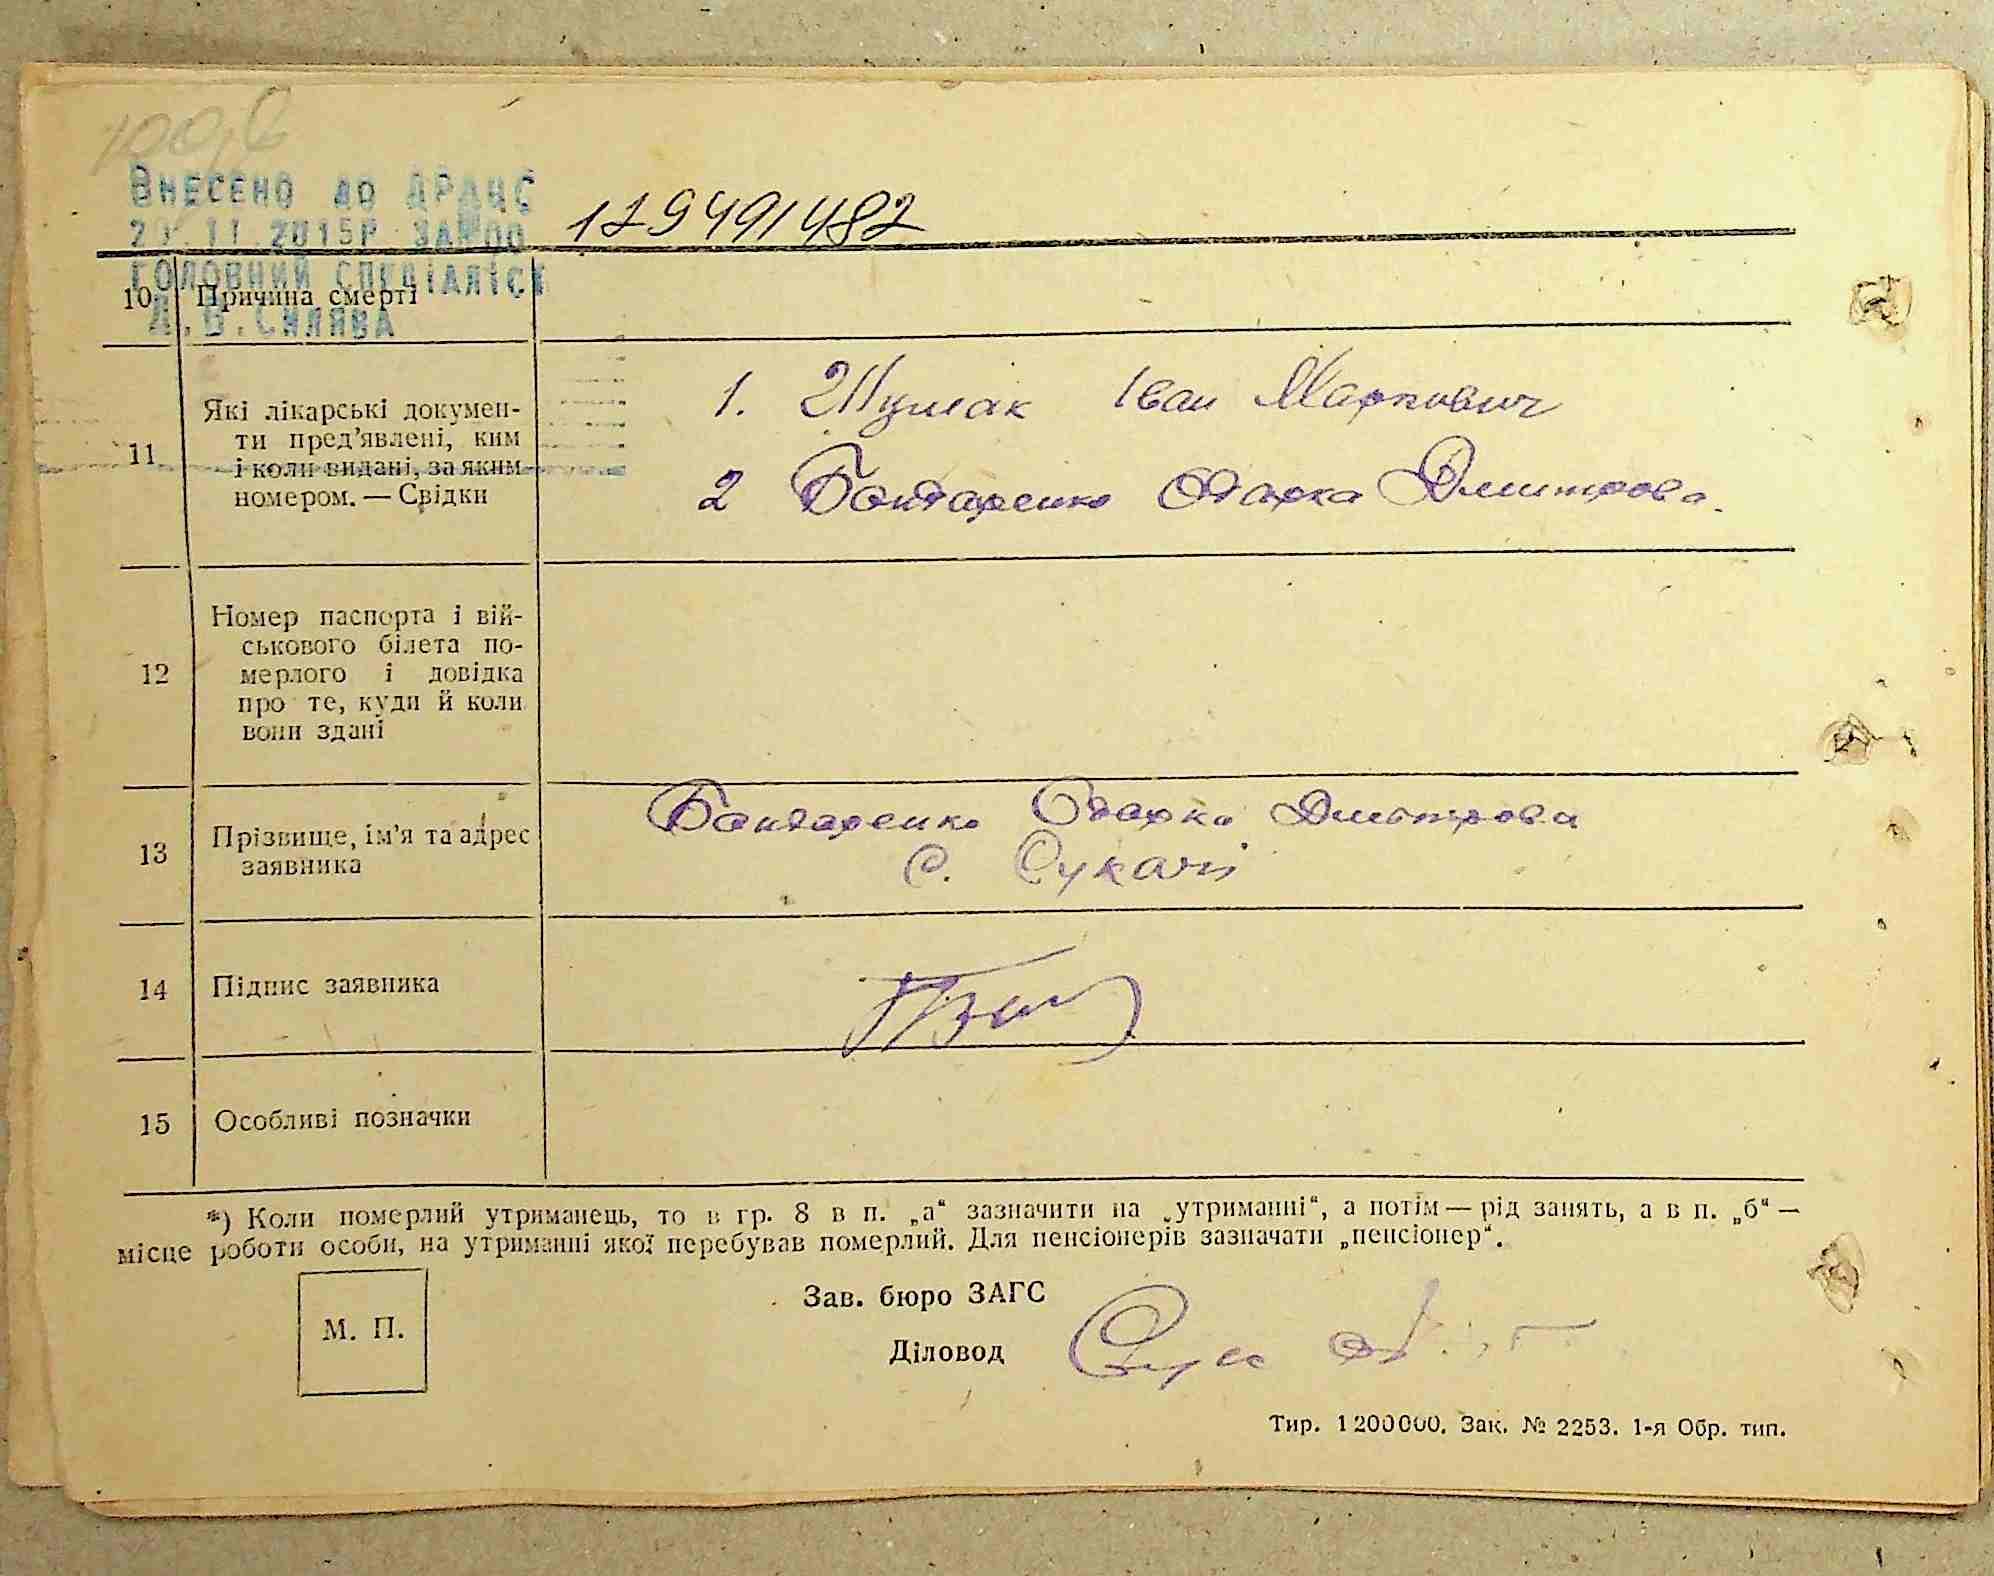 100,6
ВНЕСЕНО ДО ДРАЦС
11.2015Р ЗА №00 179491482
ГОЛОВНИЙ СПЕЦІАЛІСТ
10 Причина смерті
.В.СИЛЯВА
11 Які лікарські докумен-
ти пред’явлені, ким
і коли видані, за яким
номером. — Свідки
1. Шумак Іван Маркович
2 Бондаренко Одарка Дмитрова.
12 Номер паспорта і вій-
ськового білета по-
мерлого і довідка
про те, куди й коли
вони здані
13 Прізвище, ім’я та адрес
заявника
Бондаренко Одарка Дмитрова
с. Сукачі
14 Підпис заявника
15 Особливі позначки
*) Коли померлий утриманець, то в гр. 8 в п. „а“ зазначити на „утриманні“, а потім — рід занять, а в п. „б“ —
місце роботи особи, на утриманні якої перебував померлий. Для пенсіонерів зазначати „пенсіонер“.
М. П.
Зав. бюро ЗАГС
Діловод
Тир. 1 200 000. Зак. № 2253. 1-я Обр. тип.